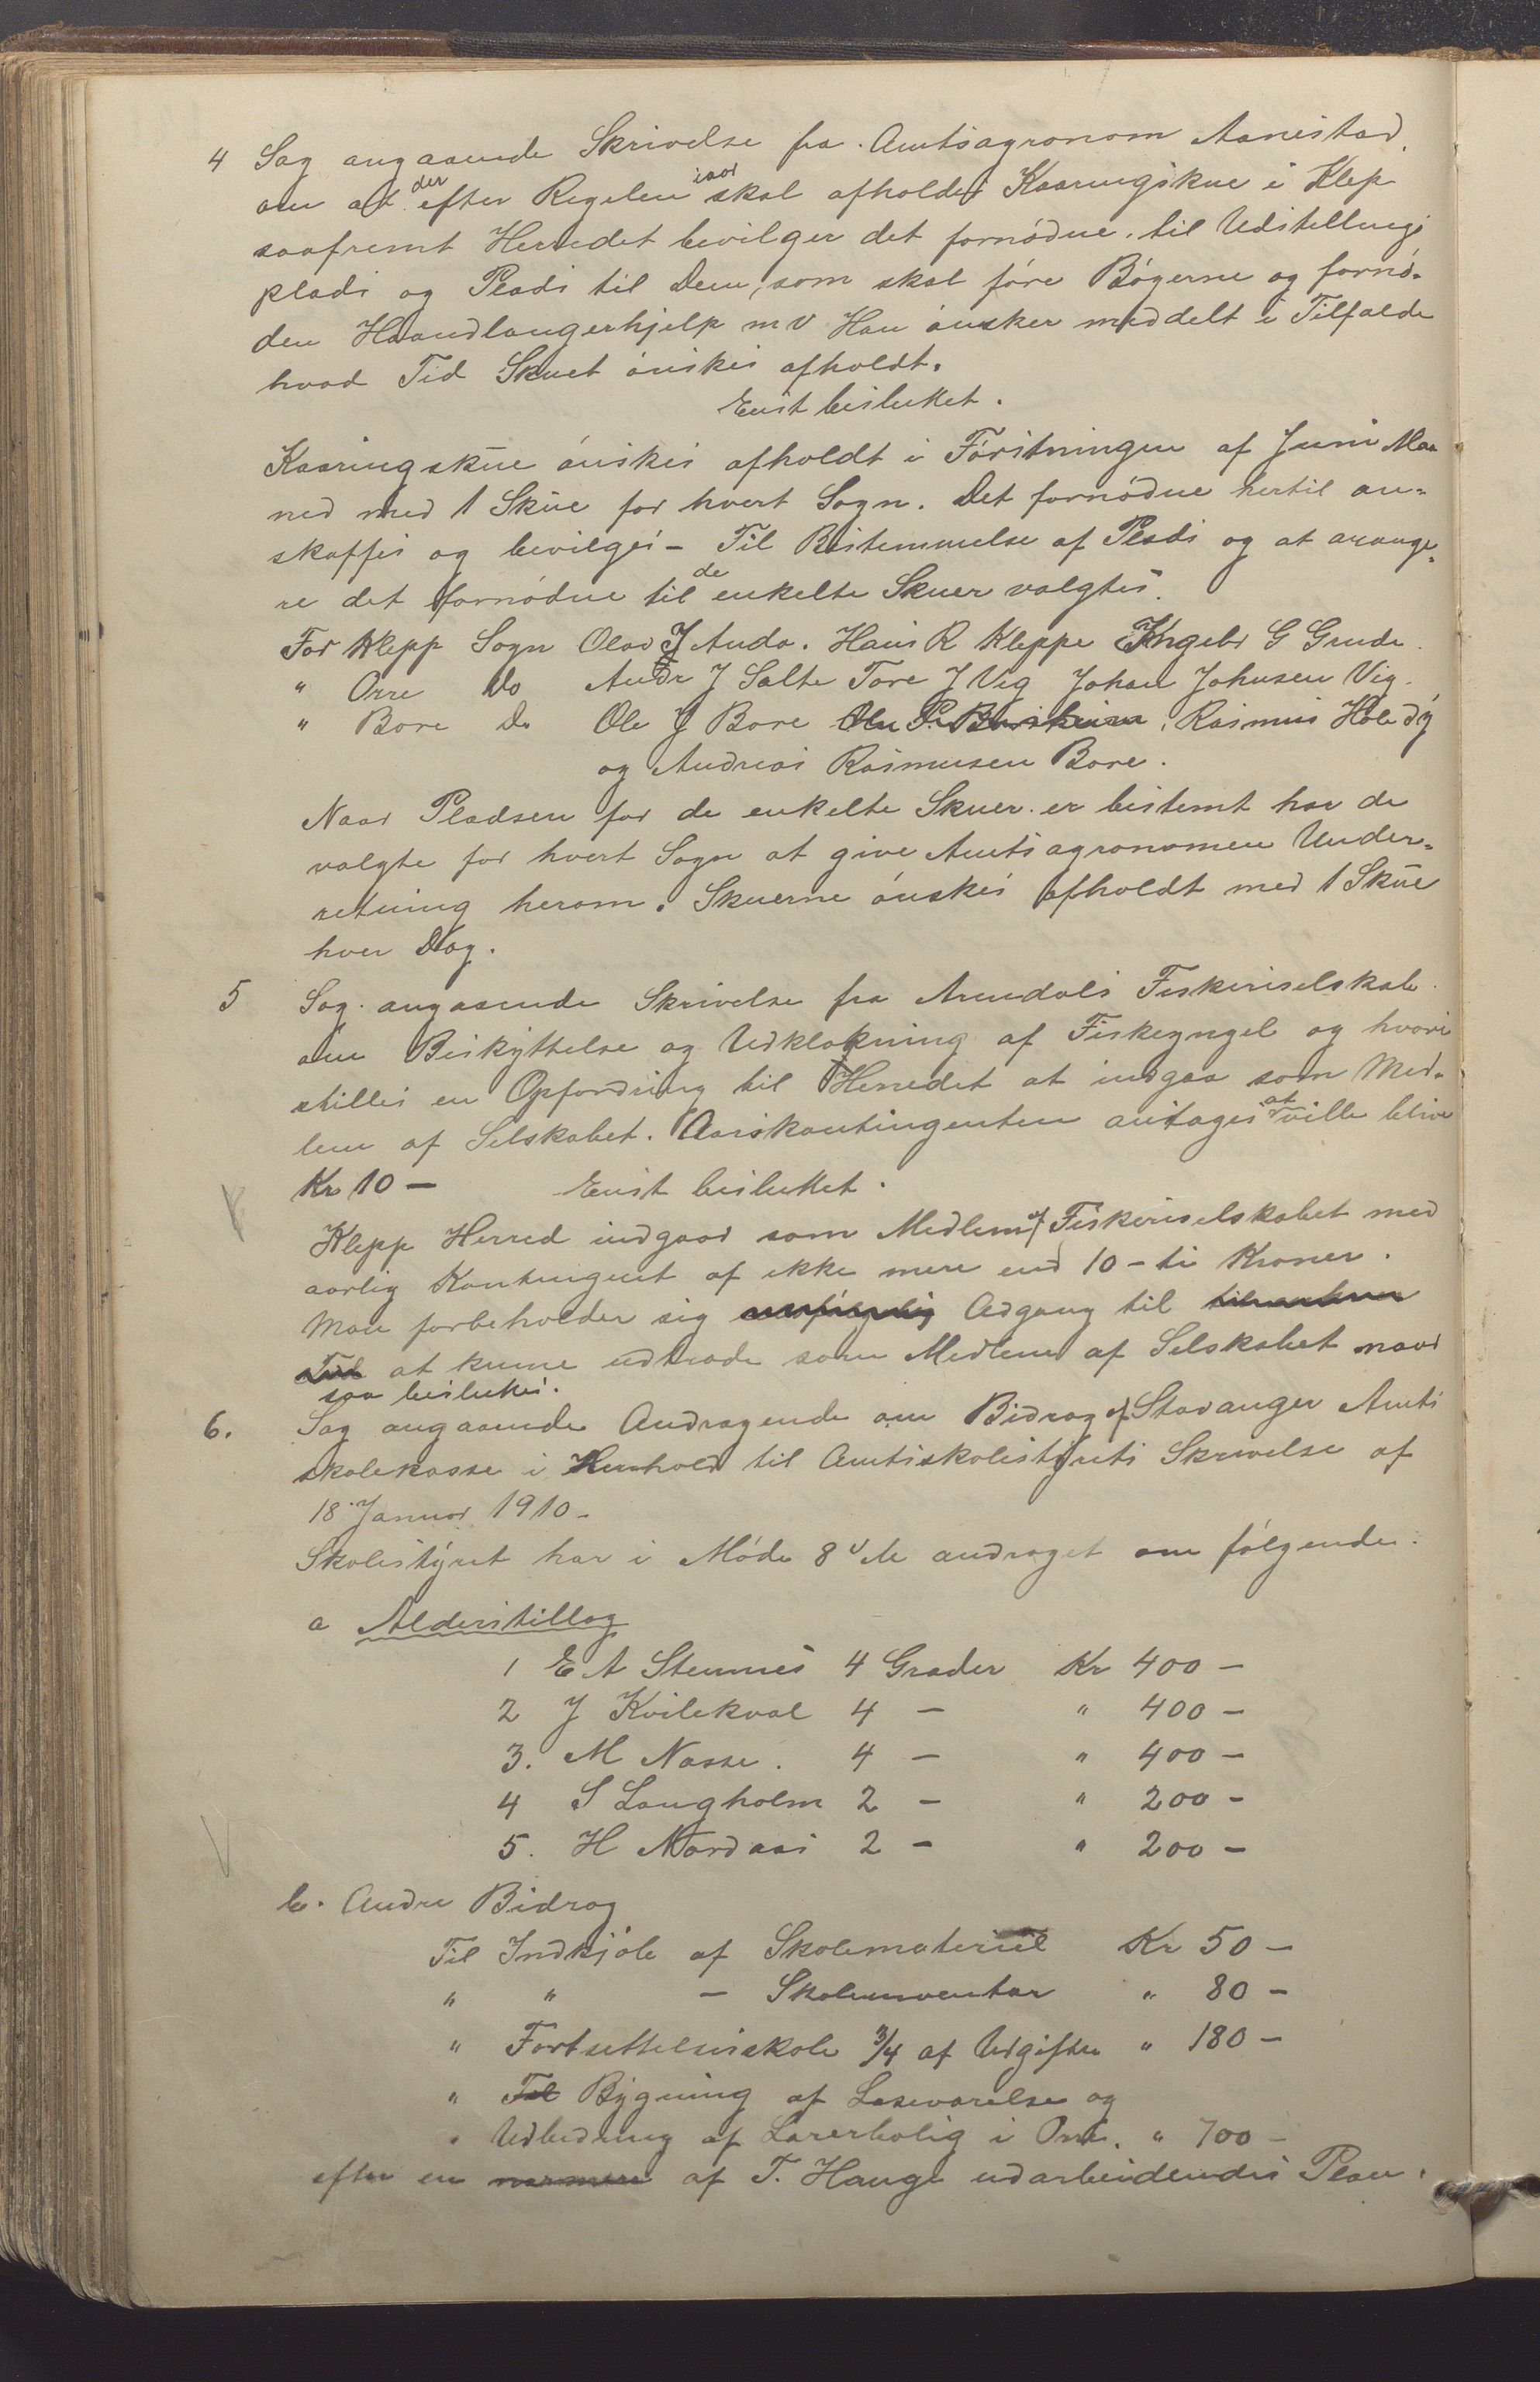 4 Sag angaaende Skrivelse fra Amtsagronom Aanestad
om at der efter Regelen iaar skal afholdes Kaaringskue i Klep
saafremt Herredet bevilger det fornødne til Udstillings
plads og Plads til Dem, som skal føre Bøgerne og fornø-
den Haandlangerhjelp m v Han ønsker meddelt i Tilfælde
hvad Tid Skuet ønskes afholdt.
Enst besluttet.
Kaaringskue ønskes afholdt i Førstningen af Juni Maa
ned med 1 Skue for hvert Sogn. Det fornødne hertil an-
skaffes og bevilges - Til Bestemmelse af Plads og at arange-
re det fornødne til de enkelte Skuer valgtes.
For Klepp Sogn Olav J Anda. Hans R Kleppe Ingebr G Grude.
" Orre Do Andr J Salte Tore J Vig Johan Johnsen Vig.
" Bore Do Ole J Bore Rasmus Hodøy
og Andreas Rasmusen Bore.
Naar Pladsen for de enkelte Skuer er bestemt har de
valgte for hvert Sogn at give Amtsagronomen Under-
retning herom. Skuerne ønskes afholdt med 1 Skue
hver Dag.
5 Sag angaaende Skrivelse fra Arendals Fiskeriselskab
om Beskyttelse og Udklækning af Fiskeyngel og hvori
stilles en Opfordring til Herredet at indgaa som Med-
lem af Selskabet. Aarskontingenten antages at ville blive
Kr 10 - Enst besluttet.
Klepp Herred indgaar som Medlem af Fiskeriselskabet med
aarlig Kontingent af ikke mere end 10 - ti Kroner.
Man forbeholder sig Adgang til
at kunne udtræde som Medlem af Selskabet naar
saa besluttes.
6. Sag angaaende Andragende om Bidrag af Stavanger Amts
skolekasse i Henhold til Amtsskolestyrets Skrivelse af
18 Januar 1910 -
Skolestyret har i Møde 8 ds andraget om følgende:
a Alderstillæg
1 E A Stennes 4 Grader Kr 400 -
2 J Kvilekval 4 - " 400 -
3. M Næsse. 4 - " 400 -
4 S Langholm 2 - " 200 -
5. H Nordaas 2 - " 200 -
b. Andre Bidrag
Til Indkjøb af Skolemateriel Kr 50 -
" " - Skoleinventar " 80 -
" Fortsettelsesskole 3/4 af Udgifter " 180 -
" Til Bygning af Læseværelse og
" Udbedring af Lærerbolig i Orre. " 700 -
efter en nærmere af T. Hauge udarbeidendes Plan.